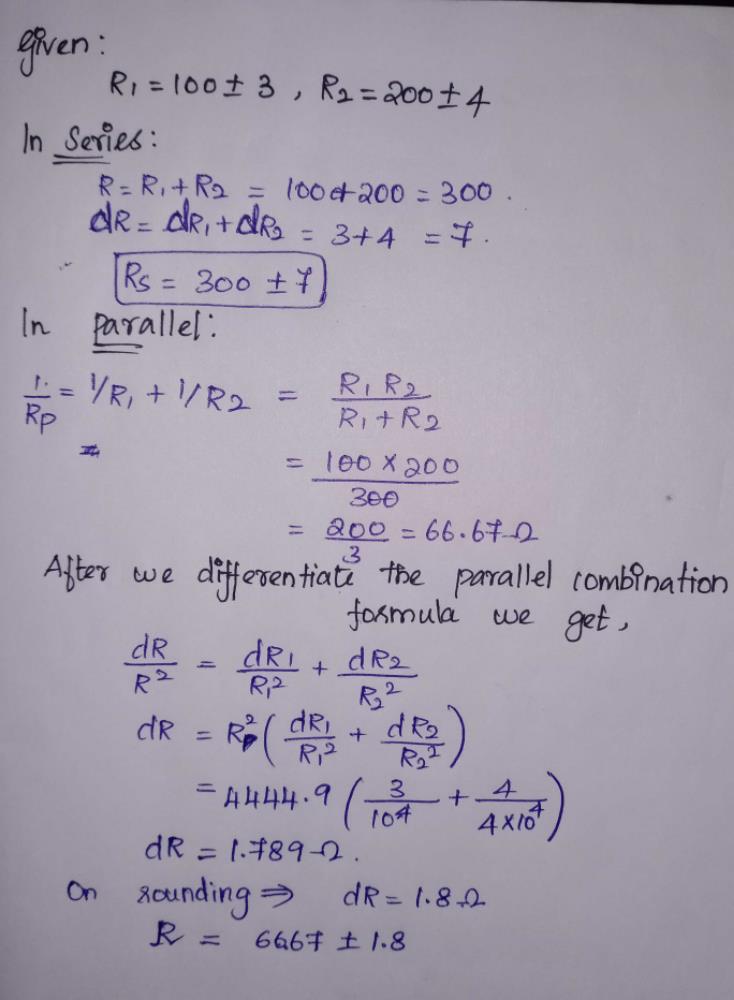 given:
R1 = 100 ± 3 , R2 = 200 ± 4
In Series:
R = R1 + R2 = 100 + 200 = 300 .
dR = dR1 + dR2 = 3+4 = 7 .
Rs = 300 ± 7
In parallel:
1/Rp = 1/R1 + 1/R2 = R1 R2 / R1 + R2
= 100 X 200 / 300
= 200 / 3 = 66.67 Ω
After we differentiate the parallel combination
formula we get,
dR/R² = dR1/R1² + dR2/R2²
dR = Rp² ( dR1/R1² + dR2/R2² )
= 4444.9 ( 3/10⁴ + 4/4X10⁴ )
dR = 1.789 Ω .
On rounding ⇒ dR = 1.8 Ω
R = 66.67 ± 1.8